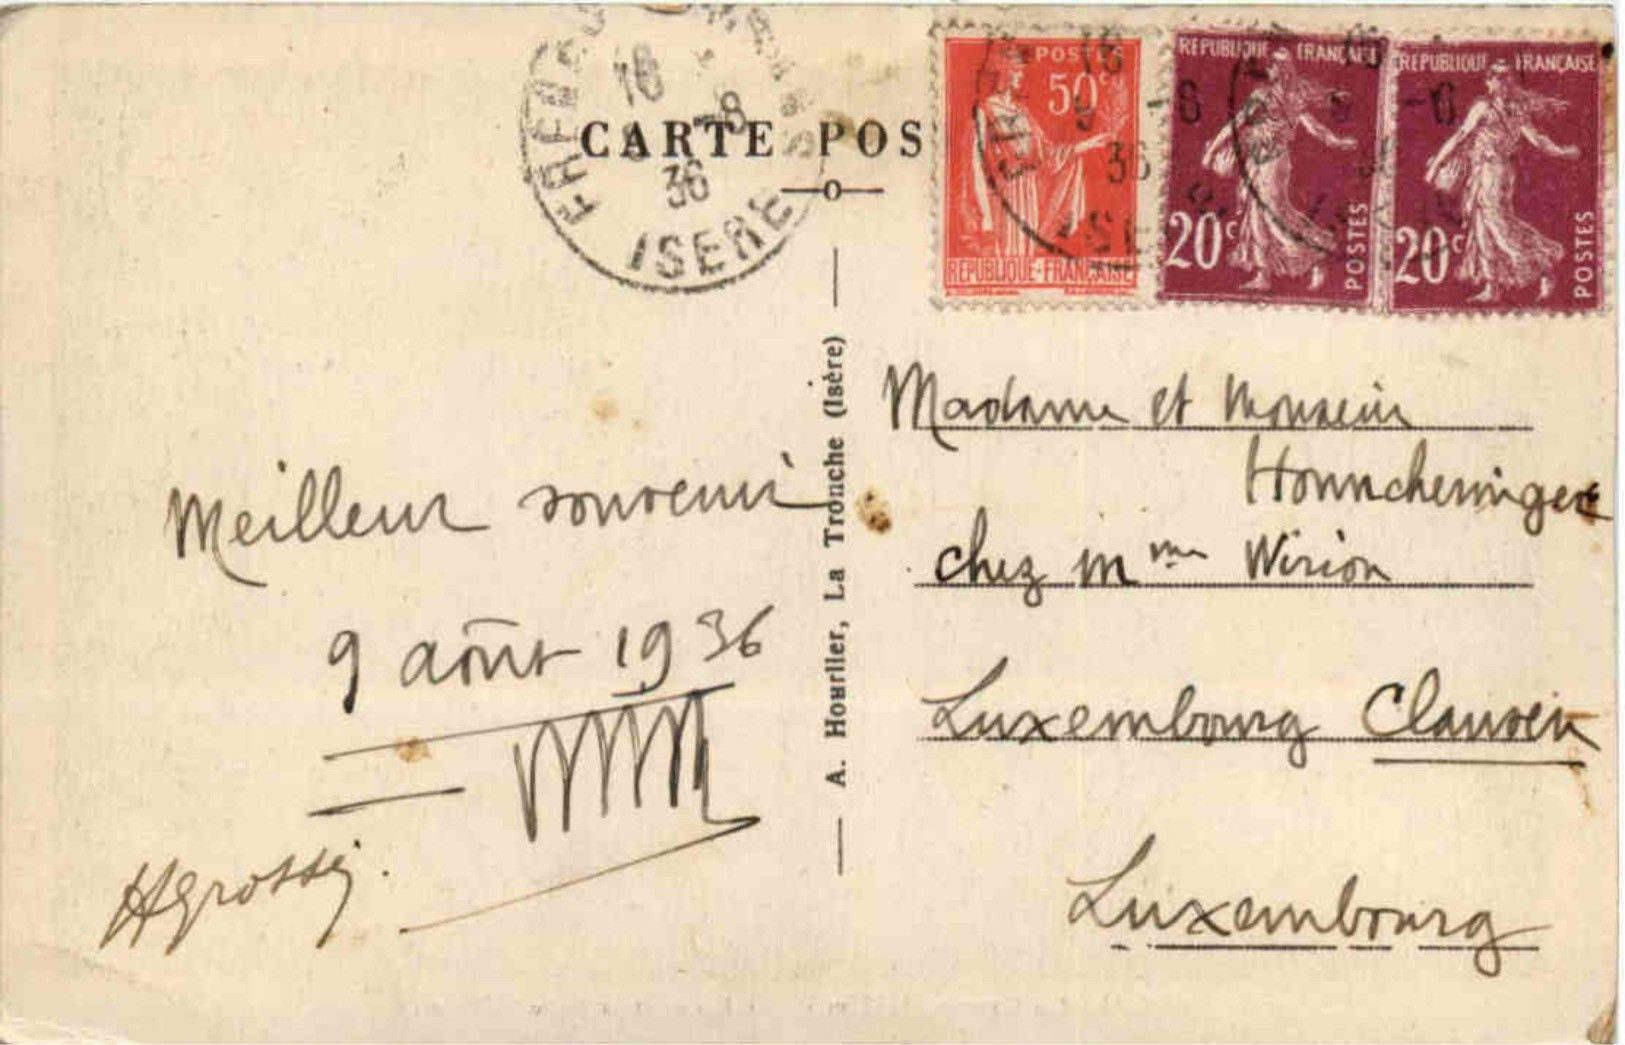 CARTE POS
ISERE
36
POSTES
50c
REPUBLIQUE FRANÇAISE
REPUBLIQUE FRANÇAISE
20c
POSTES
REPUBLIQUE FRANÇAISE
20c
POSTES
Meilleur souvenir
9 août 1936
A. Hourlier, La Tronche (Isère)
Madame et Monsieur
chez Mme Wirion
Luxembourg Clausen
Luxembourg